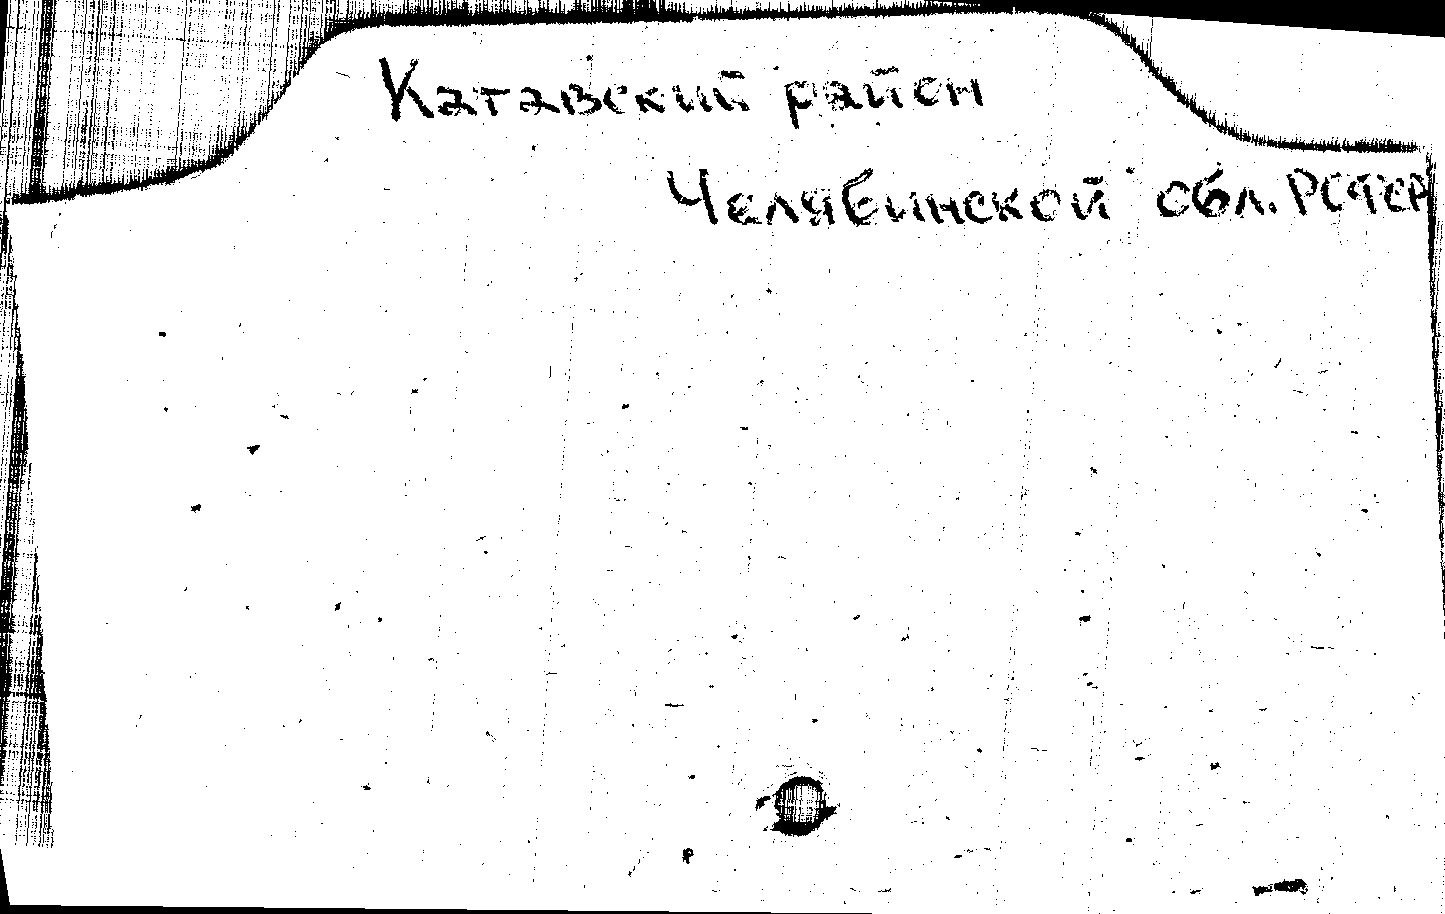 Катавский район
Челябинской обл. РСФСР